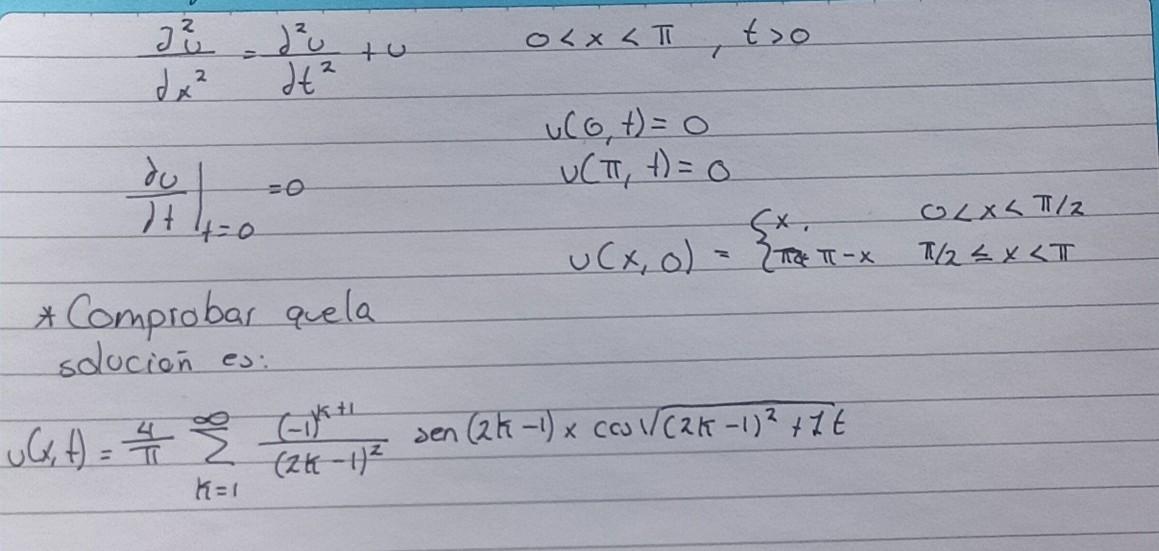 ∂²u/∂x² = ∂²u/∂t² + u    0 < x < π , t > 0
u(0, t) = 0
∂u/∂t |t=0 = 0    u(π, t) = 0
u(x, 0) = { x,    0 < x < π/2
π - x    π/2 ≤ x < π
* Comprobar que la
solución es:
u(x, t) = 4/π ∑_{k=1}^{∞} (-1)^{k+1}/(2k-1)² sen (2k-1) x cos √((2k-1)² + 1) t